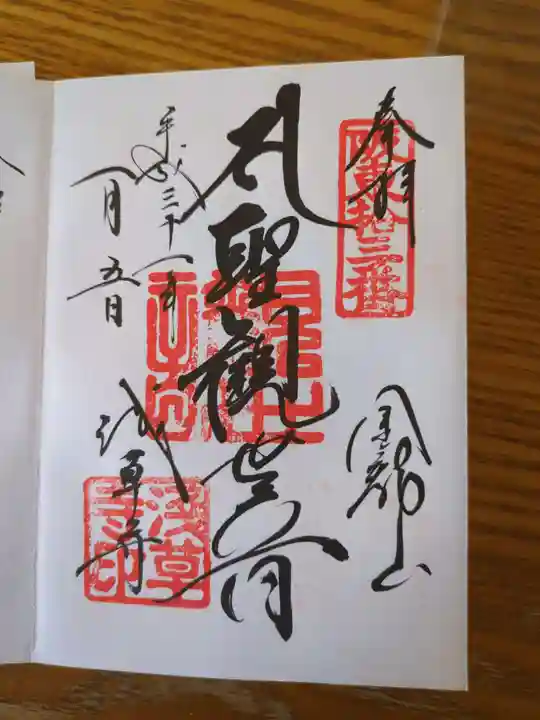 奉拝
坂東拾三番
聖観世音
平成三十一年
一月五日
浅草寺
浅草寺印